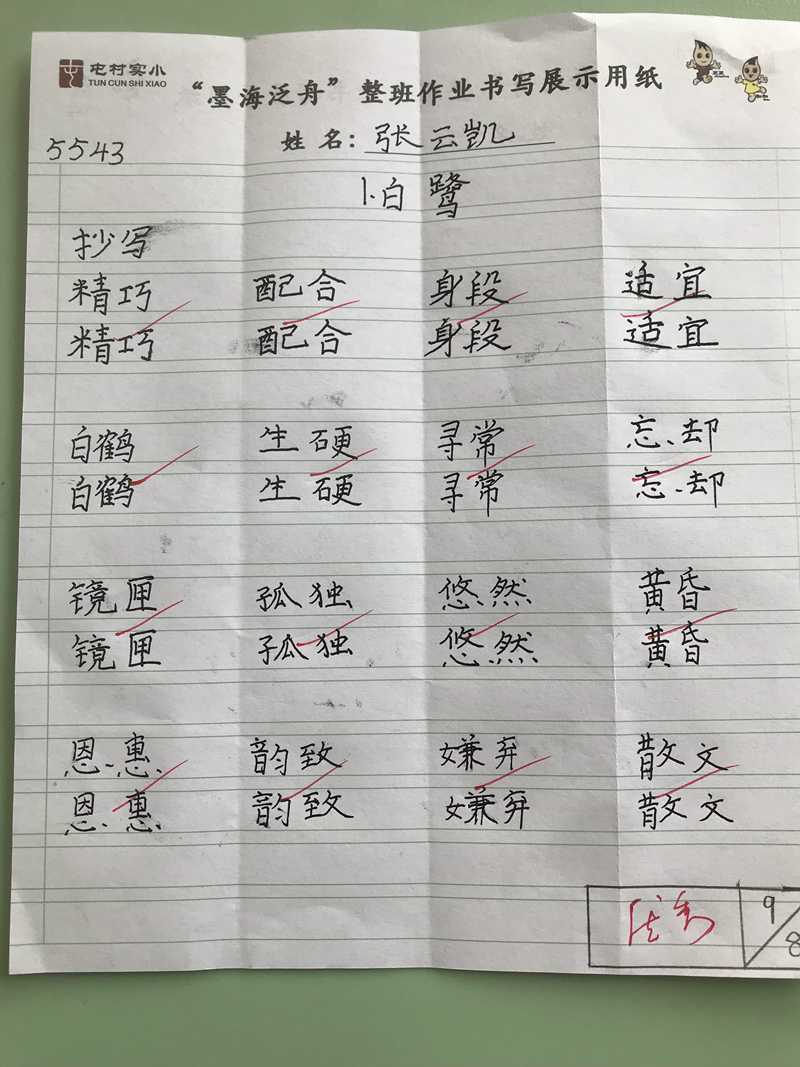 屯村实小
TUN CUN SHI XIAO
“墨海泛舟”整班作业书写展示用纸
5543
姓 名：张云凯
1.白鹭
抄写
精巧 配合 身段 适宜
精巧 配合 身段 适宜
白鹤 生硬 寻常 忘却
白鹤 生硬 寻常 忘却
镜匣 孤独 悠然 黄昏
镜匣 孤独 悠然 黄昏
恩惠 韵致 嫌弃 散文
恩惠 韵致 嫌弃 散文
优秀 9/8